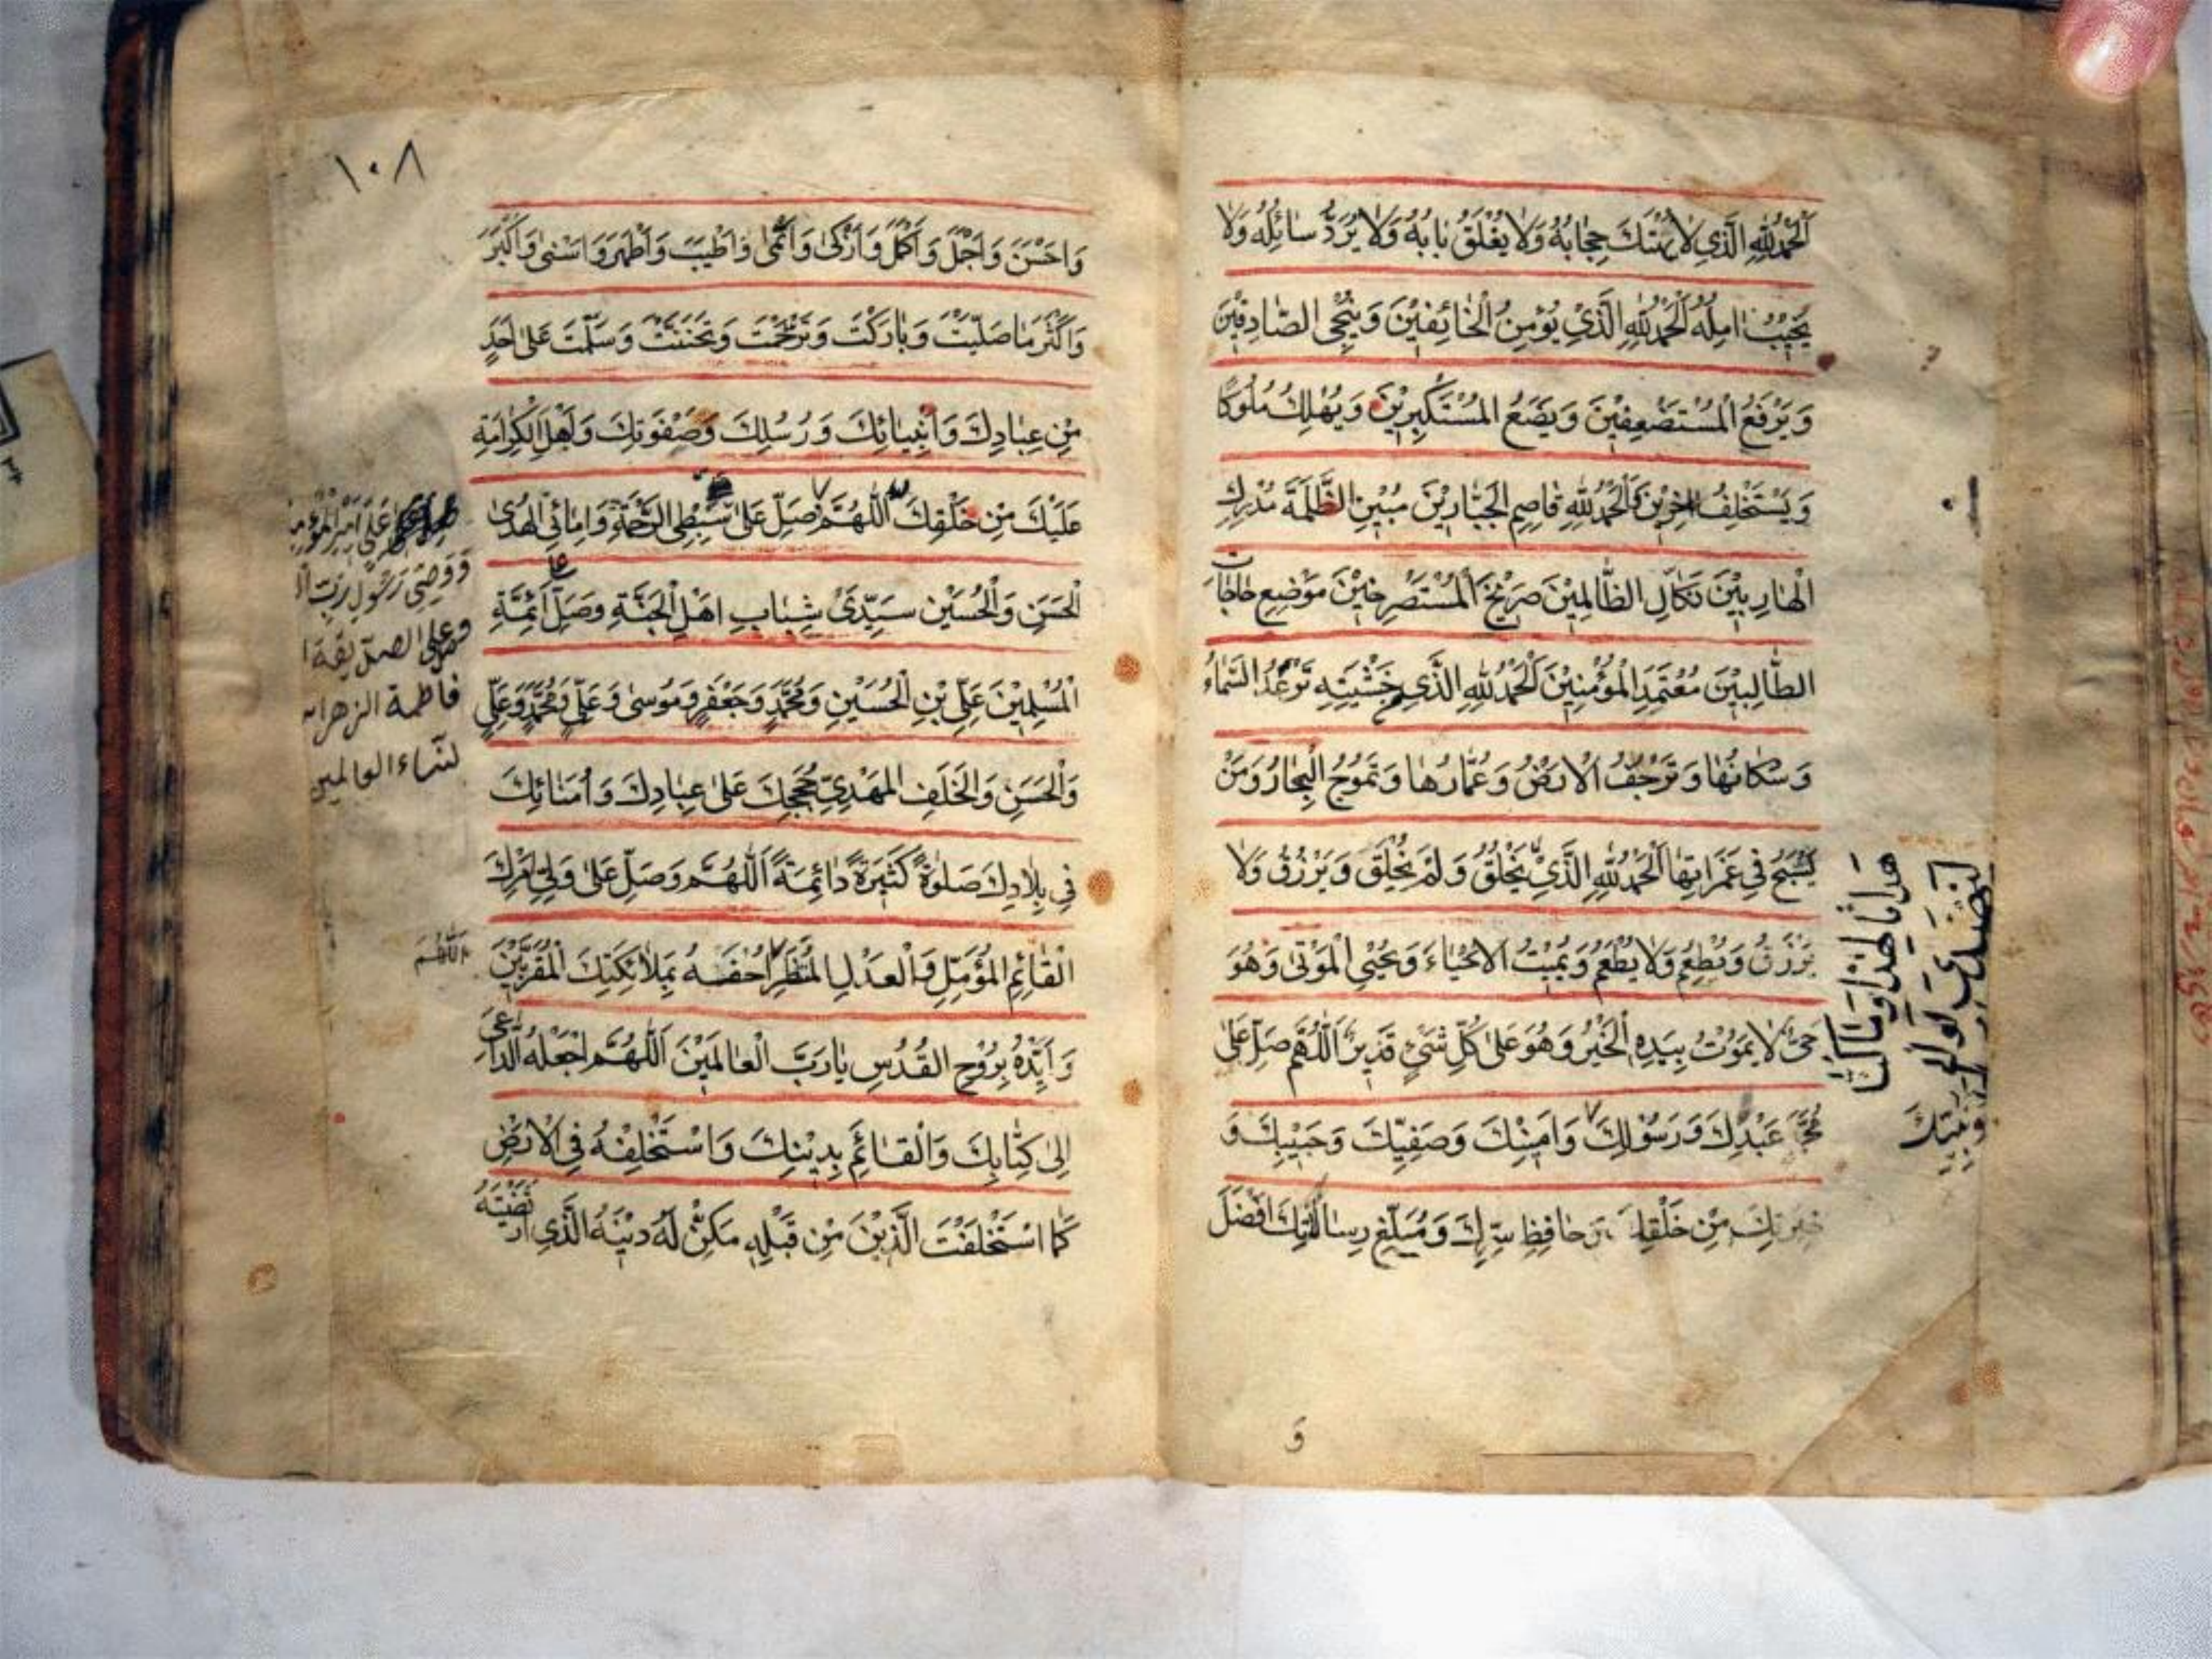 اَلْحَمْدُ لِلّٰهِ الَّذِي لَا يُهْتَكُ حِجَابُهُ وَلَا يُغْلَقُ بَابُهُ وَلَا يُرَدُّ سَائِلُهُ وَلَا
يُخَيَّبُ امِلُهُ اَلْحَمْدُ لِلّٰهِ الَّذِيْ يُؤْمِنُ الْخَائِفِيْنَ وَيُنْجِي الصَّادِقِيْنَ
وَيَرْفَعُ الْمُسْتَضْعَفِيْنَ وَيَضَعُ الْمُسْتَكْبِرِيْنَ وَيُهْلِكُ مُلُوكًا
وَيَسْتَخْلِفُ اخَرِيْنَ وَالْحَمْدُ لِلّٰهِ قَاصِمِ الْجَبَّارِيْنَ مُبِيْرِ الظَّلَمَةِ مُدْرِكِ
الْهَارِبِيْنَ نَكَالِ الظَّالِمِيْنَ صَرِيْخِ الْمُسْتَصْرِخِيْنَ مَوْضِعِ حَاجَاتِ
الطَّالِبِيْنَ مُعْتَمَدِ الْمُؤْمِنِيْنَ اَلْحَمْدُ لِلّٰهِ الَّذِي خَشْيَتِهِ تَرْعَدُ السَّمَاءُ
وَسُكَّانُهَا وَتَرْجُفُ الْاَرْضُ وَعُمَّارُهَا وَتَمُوْجُ الْبِحَارُ وَمَنْ
يَسْبَحُ فِي غَمَرَاتِهَا اَلْحَمْدُ لِلّٰهِ الَّذِيْ يَخْلُقُ وَلَمْ يُخْلَقْ وَيَرْزُقُ وَلَا
يُرْزَقُ وَيُطْعِمُ وَلَا يُطْعَمُ وَيُمِيْتُ الْاَحْيَاءَ وَيُحْيِي الْمَوْتٰى وَهُوَ
حَيٌّ لَا يَمُوْتُ بِيَدِهِ الْخَيْرُ وَهُوَ عَلٰى كُلِّ شَيْءٍ قَدِيْرٌ اَللّٰهُمَّ صَلِّ عَلٰى
مُحَمَّدٍ عَبْدِكَ وَرَسُوْلِكَ وَاَمِيْنِكَ وَصَفِيِّكَ وَحَبِيْبِكَ وَ
خِيَرَتِكَ مِنْ خَلْقِكَ وَحَافِظِ سِرِّكَ وَمُبَلِّغِ رِسَالَاتِكَ اَفْضَلَ
وَ
١٠٨
وَاَحْسَنَ وَاَجْمَلَ وَاَكْمَلَ وَاَزْكٰى وَاَنْمٰى وَاَطْيَبَ وَاَطْهَرَ وَاَسْنٰى وَاَكْبَرَ
وَاَكْثَرَ مَا صَلَّيْتَ وَبَارَكْتَ وَتَرَحَّمْتَ وَتَحَنَّنْتَ وَسَلَّمْتَ عَلٰى اَحَدٍ
مِنْ عِبَادِكَ وَاَنْبِيَائِكَ وَرُسُلِكَ وَصَفْوَتِكَ وَاَهْلِ الْكَرَامَةِ
عَلَيْكَ مِنْ خَلْقِكَ اَللّٰهُمَّ صَلِّ عَلٰى سِبْطَيِ الرَّحْمَةِ وَاِمَامَيِ الْهُدٰى
الْحَسَنِ وَالْحُسَيْنِ سَيِّدَيْ شَبَابِ اَهْلِ الْجَنَّةِ وَصَلِّ عَلٰى اَئِمَّةِ
الْمُسْلِمِيْنَ عَلِيِّ بْنِ الْحُسَيْنِ وَمُحَمَّدٍ وَجَعْفَرٍ وَمُوسٰى وَعَلِيٍّ وَمُحَمَّدٍ وَعَلِيٍّ
وَالْحَسَنِ وَالْخَلَفِ الْمَهْدِيِّ حُجَجِكَ عَلٰى عِبَادِكَ وَاُمَنَائِكَ
فِي بِلَادِكَ صَلٰوةً كَثِيْرَةً دَائِمَةً اَللّٰهُمَّ وَصَلِّ عَلٰى وَلِيِّ اَمْرِكَ
الْقَائِمِ الْمُؤَمَّلِ وَالْعَدْلِ الْمُنْتَظَرِ احْفُفْهُ بِمَلَائِكَتِكَ الْمُقَرَّبِيْنَ
وَاَيِّدْهُ بِرُوْحِ الْقُدُسِ يَا رَبَّ الْعَالَمِيْنَ اَللّٰهُمَّ اجْعَلْهُ الدَّاعِيَ
اِلٰى كِتَابِكَ وَالْقَائِمَ بِدِيْنِكَ وَاسْتَخْلِفْهُ فِي الْاَرْضِ
كَمَا اسْتَخْلَفْتَ الَّذِيْنَ مِنْ قَبْلِهِ مَكِّنْ لَهُ دِيْنَهُ الَّذِي ارْتَضَيْتَهُ
عَلِيٍّ اَمِيْرِ الْمُؤْمِن
وَوَصِيِّ رَسُوْلِ رَبِّ ال
وعلى الصديقة ا
فاطمة الزهراء
لنساء العالمين
اللّٰهُمَّ